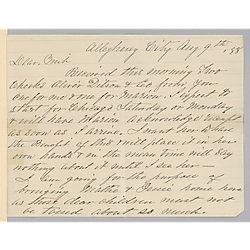 Allegheny City Aug 9th '88
Dear
Received this morning two
checks &
you for me & one for Marion. I expect to
start for Chicago Saturday or Monday
& will have Marion acknowledge receipt
as soon as I arrive. I want her to have
the benefit of this & will place it in her
own hands & in the mean time will say
nothing about it until I see her —
I am going for the purpose of
bringing & home here
as those dear children must not
be moved about so much.